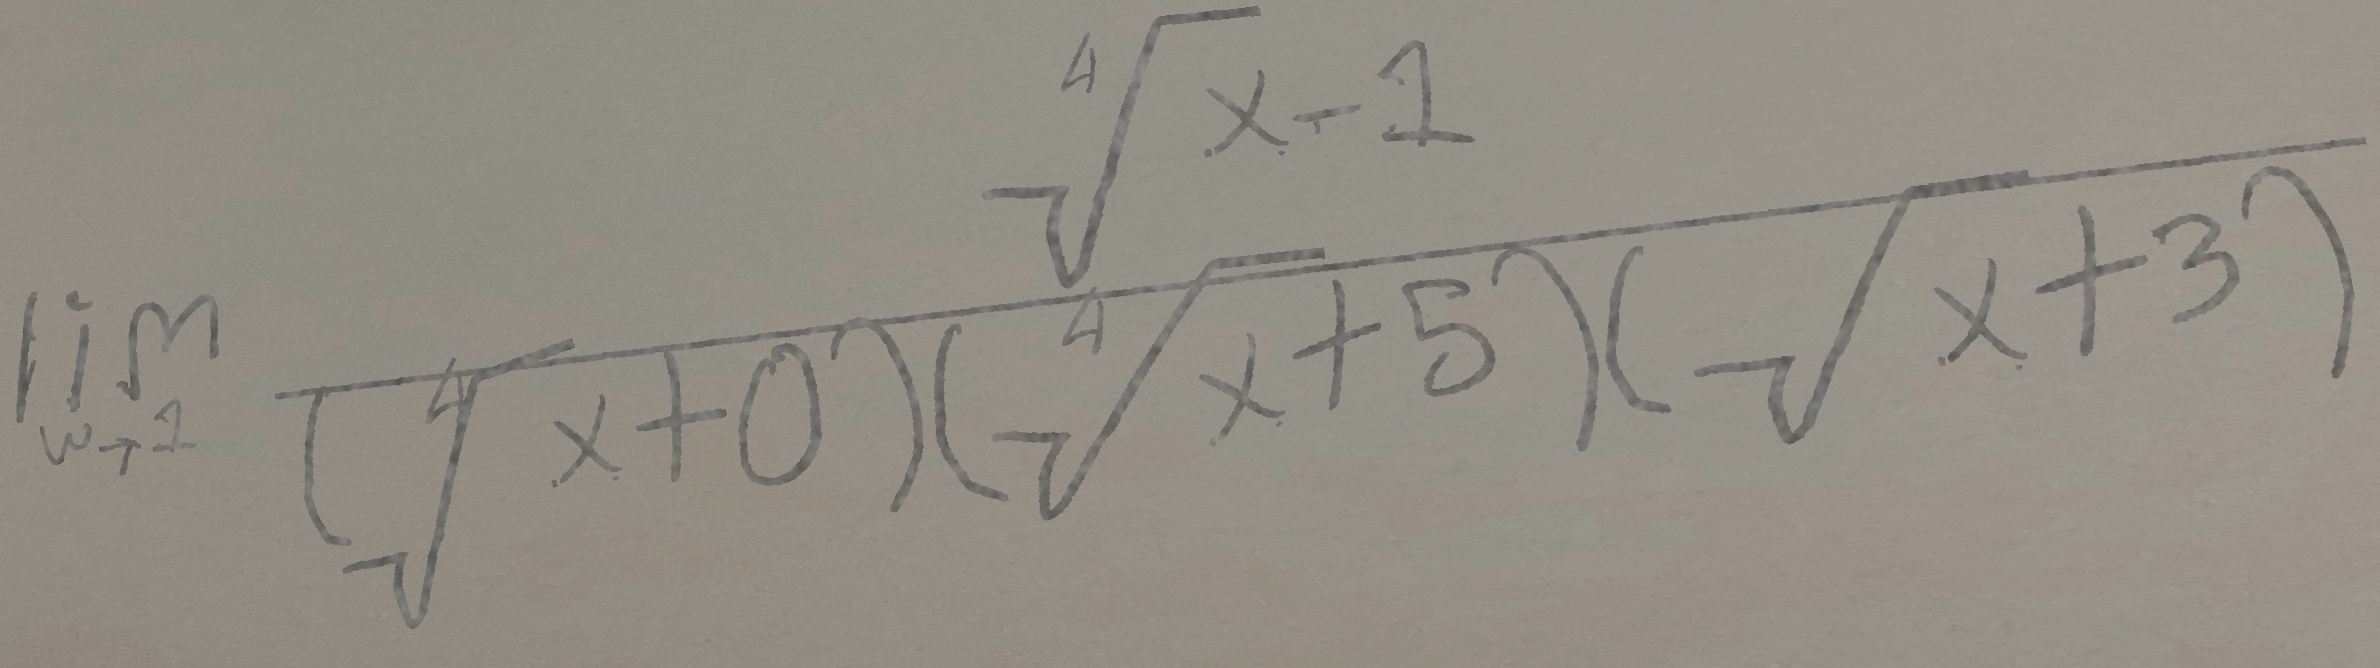 \lim_{w \to 1} \frac{\sqrt[4]{x-1}}{(\sqrt[4]{x+0})(\sqrt[4]{x+5})(\sqrt{x+3})}